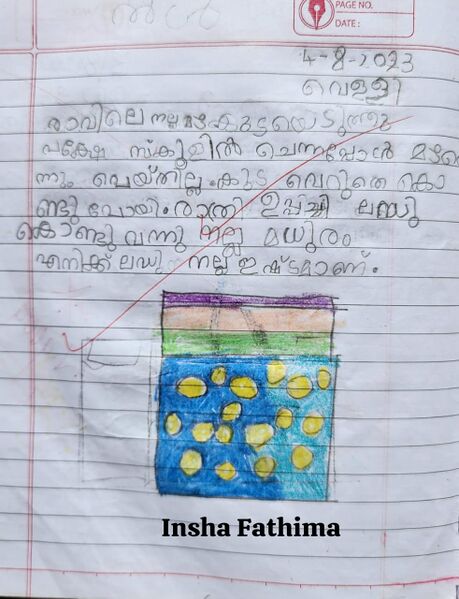 PAGE NO.
DATE :
4-8-2023
വെള്ളി
രാവിലെ നല്ല മഴ കുടയെടുത്തു
പക്ഷേ സ്കൂളിൽ ചെന്നപ്പോൾ മഴയൊ
ന്നും പെയ്തില്ല. കുട വെറുതെ കൊ
ണ്ടു പോയി. രാത്രി ഉപ്പച്ചി ലഡു
കൊണ്ടു വന്നു നല്ല മധുരം
എനിക്ക് ലഡു നല്ല ഇഷ്ടമാണ്.
Insha Fathima